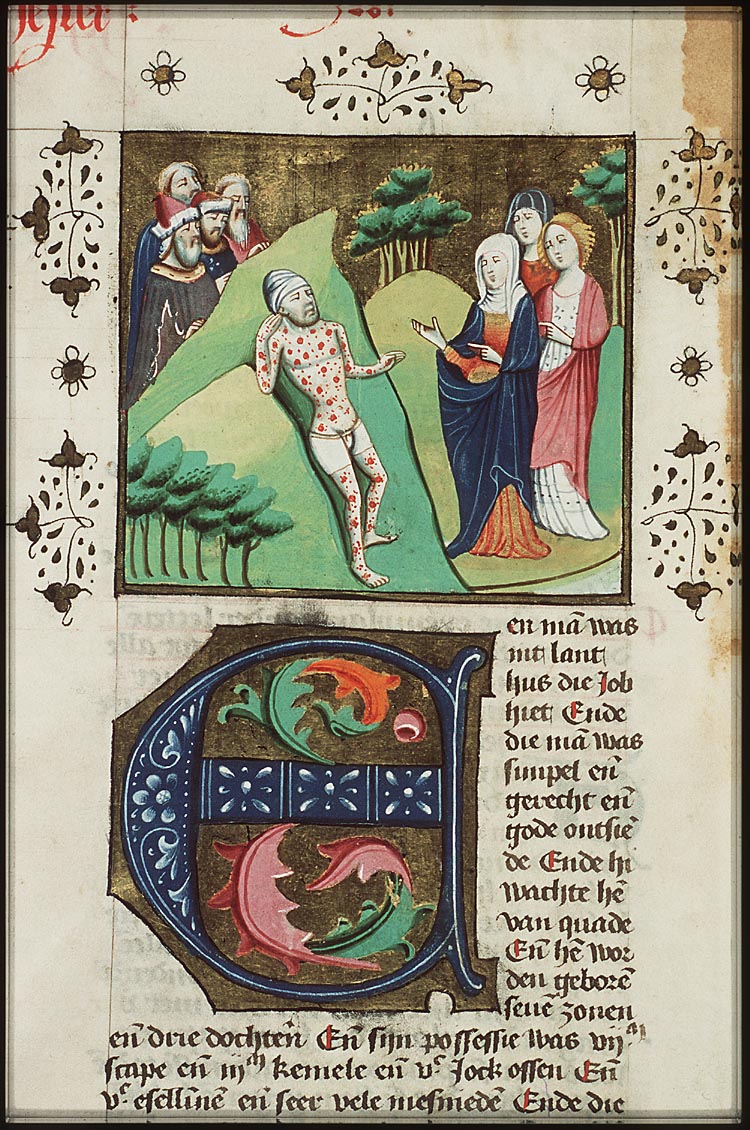 en mā was
int lant
hus die Job
hiet Ende
die mā was
simpel eñ
gerecht eñ
gode ontsie
de Ende hi
wachte hē
van quade
Eñ hē wor
den geborē
seuē zonen
eñ drie dochterñ Eñ sijn possessie was vijᵐ
scape eñ iijᵐ kemele eñ vᶜ Jock ossen Eñ
vᶜ esellinnē eñ seer vele mesniedē Ende die